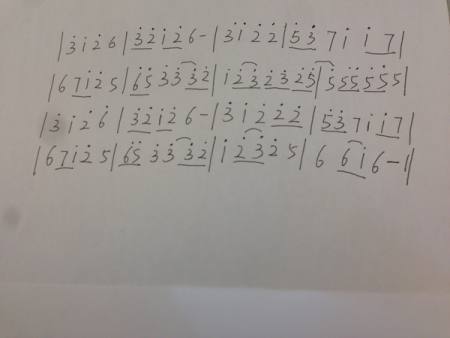 |3̇ i 2̇ 6|3̇2̇ i2̇ 6-|3̇ i 2̇ 2̇|5̇3̇ 7 i i 7|
|6 7i 2̇ 5|6̇5̇ 3̇ 3̇ 3̇2̇|i 2̇3̇ 2̇3̇ 2̇5̇|5̇ 5̇5̇ 5̇5̇ 5|
|3̇ i 2̇ 6̇|3̇2̇ i2̇ 6-|3̇ i 2̇ 2̇ 2̇|5̇3̇ 7 i i 7|
|6 7i 2̇ 5|6̇5̇ 3̇ 3̇ 3̇2̇|i 2̇3̇ 2̇ 5|6 6i 6-||